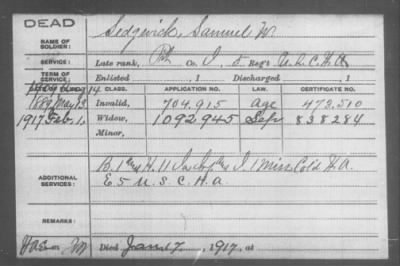 DEAD
NAME OF SOLDIER: Sedgwick, Samuel W.
SERVICE: Late rank, Pvt Co. I, 5 Reg't U.S.C.H.A
TERM OF SERVICE: Enlisted , 1 Discharged , 1
CLASS. APPLICATION NO. LAW. CERTIFICATE NO.
1889 May 13 Invalid, 704.915 Age 473.510
1917 Feb. 1. Widow, 1092945 838284
Minor,
ADDITIONAL SERVICES: B. H. 11 I. 1 Miss Cold H.A.
E 5 U.S.C.H.A.
REMARKS:
Died Jan 17, 1917, at